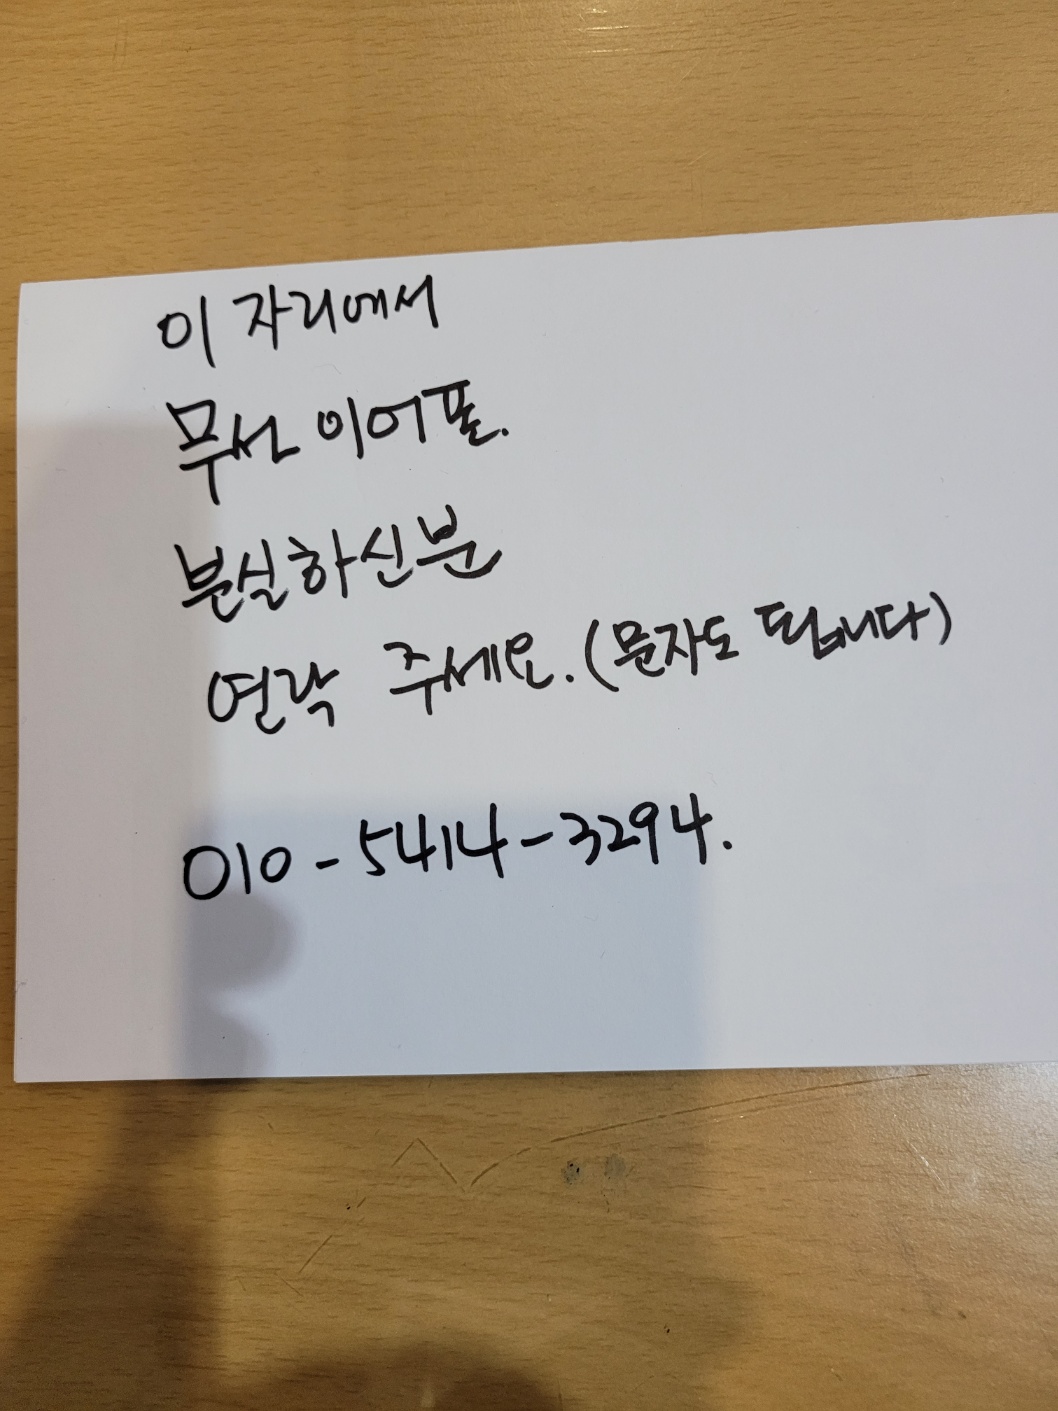 이 자리에서
무선 이어폰.
분실하신분
연락 주세요. (문자도 됩니다)
010-5414-3294.